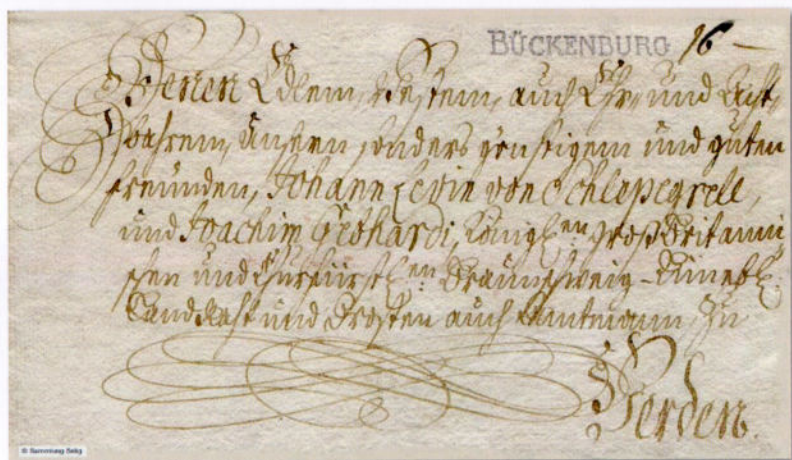 BÜCKENBURG 16 —
Denen Edlem, Vestem, auch Ehr- und Acht-
bahrem, Unsern sonders günstigem und guten
freunden, Johann Levin von Schlepegrell,
und Joachim Gebhardi, Königl.en GroßBritanni-
schen und Churfürstl.en Braunschweig-Lüneb.
LandRaht und Drosten auch Amtmann, zu
Verden.
© Sammlung Selig